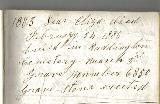 1883 Dear Eliza died
February 24 1883
buried in Paddington
Cemetery March 3rd
Grave number 6350
Grave Stone erected